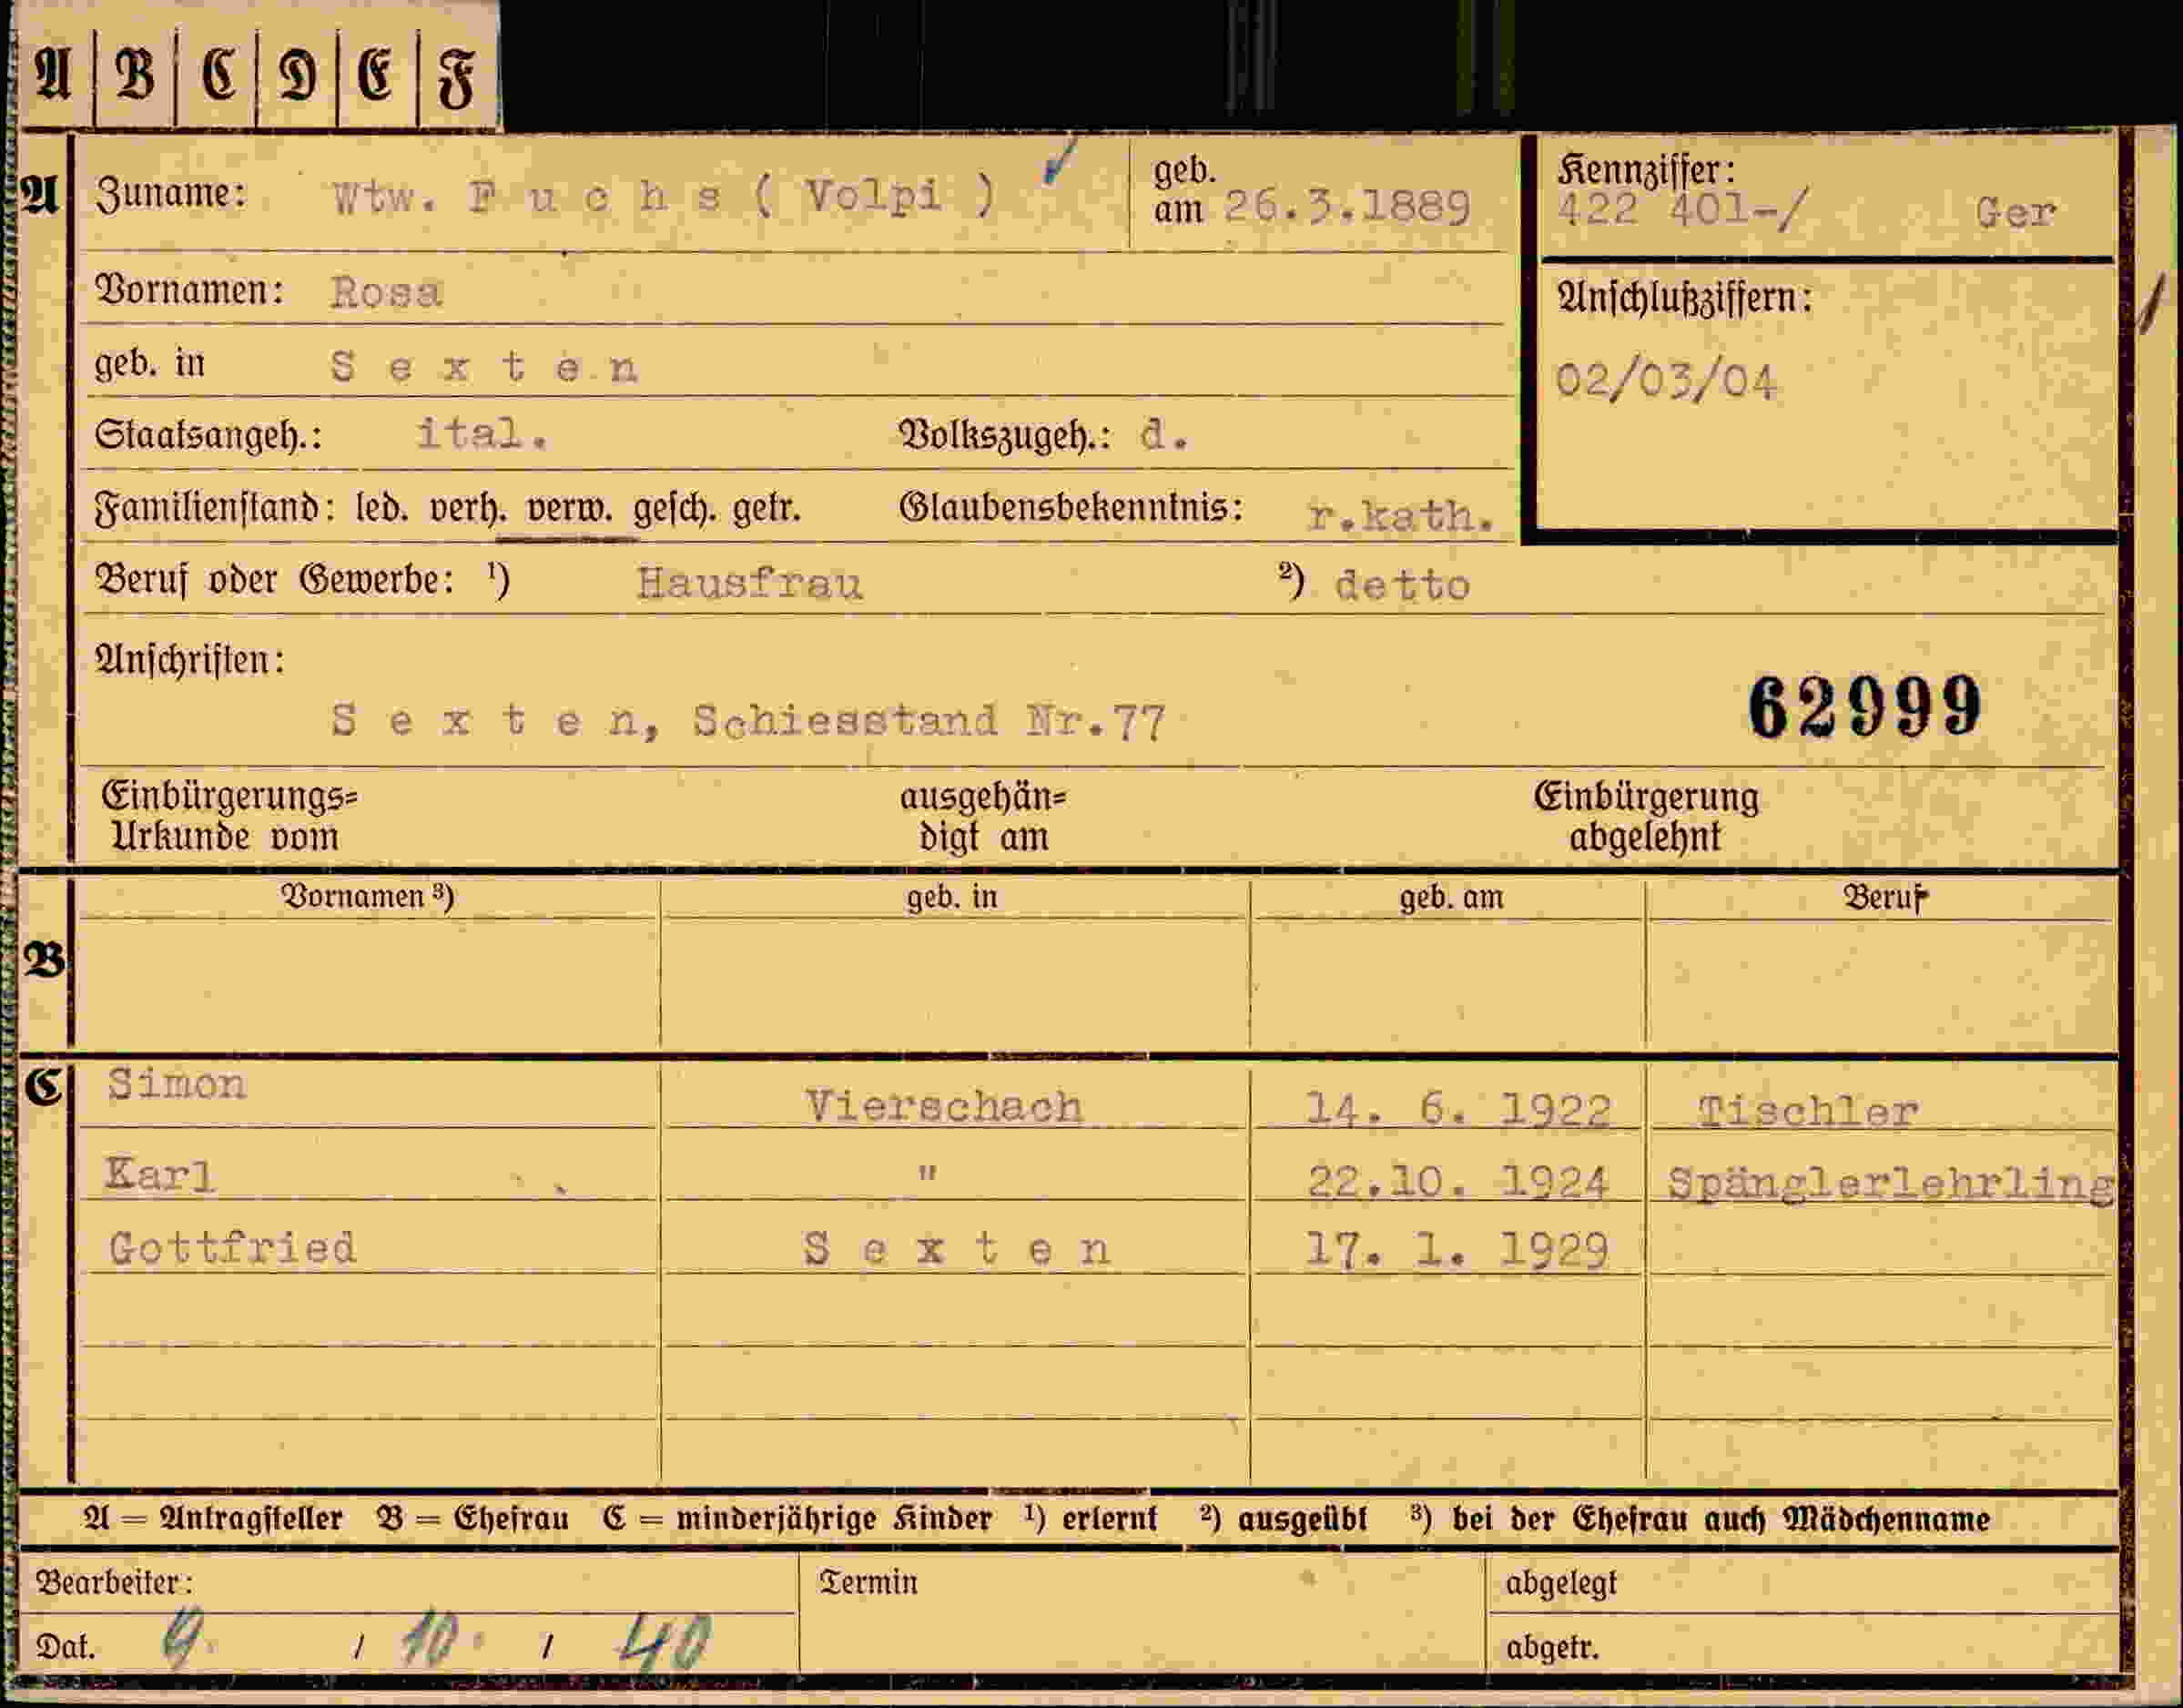 A B C D E F
A Zuname: Wtw. F u c h s ( Volpi ) geb. am 26.3.1889 Kennziffer: 422 401-/ Ger
Vornamen: Rosa Anschlußziffern:
geb. in S e x t e n 02/03/04
Staatsangeh.: ital. Volkszugeh.: d.
Familienstand: led. verh. verw. gesch. getr. Glaubensbekenntnis: r.kath.
Beruf oder Gewerbe: ¹) Hausfrau ²) detto
Anschriften:
S e x t e n, Schiesstand Nr.77 62999
Einbürgerungs= ausgehän= Einbürgerung
Urkunde vom digt am abgelehnt
Vornamen ³) geb. in geb. am Beruf
B
C Simon Vierschach 14. 6. 1922 Tischler
Karl " 22.10. 1924 Spänglerlehrling
Gottfried S e x t e n 17. 1. 1929
A = Antragsteller B = Ehefrau C = minderjährige Kinder ¹) erlernt ²) ausgeübt ³) bei der Ehefrau auch Mädchenname
Bearbeiter: Termin abgelegt
Dat. 9. / 10. / 40 abgetr.